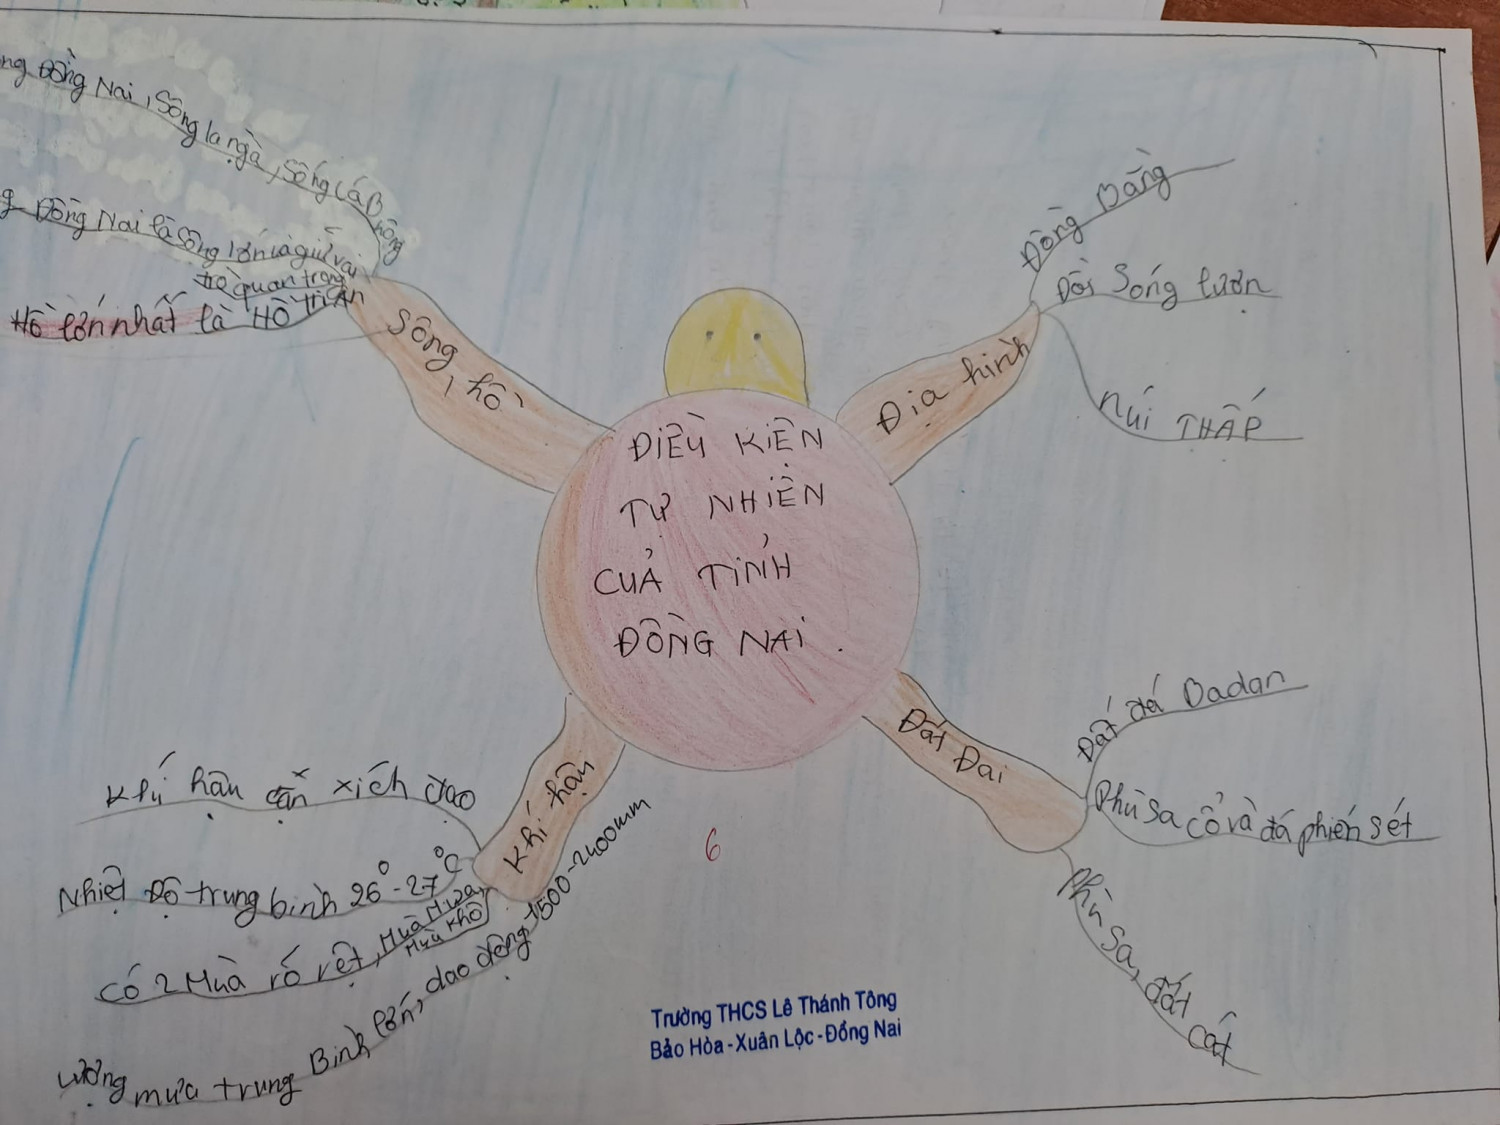 ĐIỀU KIỆN
TỰ NHIÊN
CUẢ TỈNH
ĐỒNG NAI.
Sông, hồ
Đồng Nai, Sông la ngà, Sông
Đồng Nai là sông lớn và giữ vai
trò quan trọng
Hồ lớn nhất là Hồ Trị An
Địa hình
Đồng Bằng
Đồi Sóng lượn
Núi THẤP
Đất Đai
Đất đá Badan
Phù Sa cổ và đá phiến sét
Phù Sa, đất cát
Khí hậu
Khí hậu cận xích đạo
Nhiệt Độ trung bình 26⁰-27⁰C
Có 2 Mùa rõ rệt, Mùa Mưa
Mùa Khô
Lượng mưa trung Bình lớn, dao động 1500-2400mm
6
Trường THCS Lê Thánh Tông
Bảo Hòa-Xuân Lộc-Đồng Nai